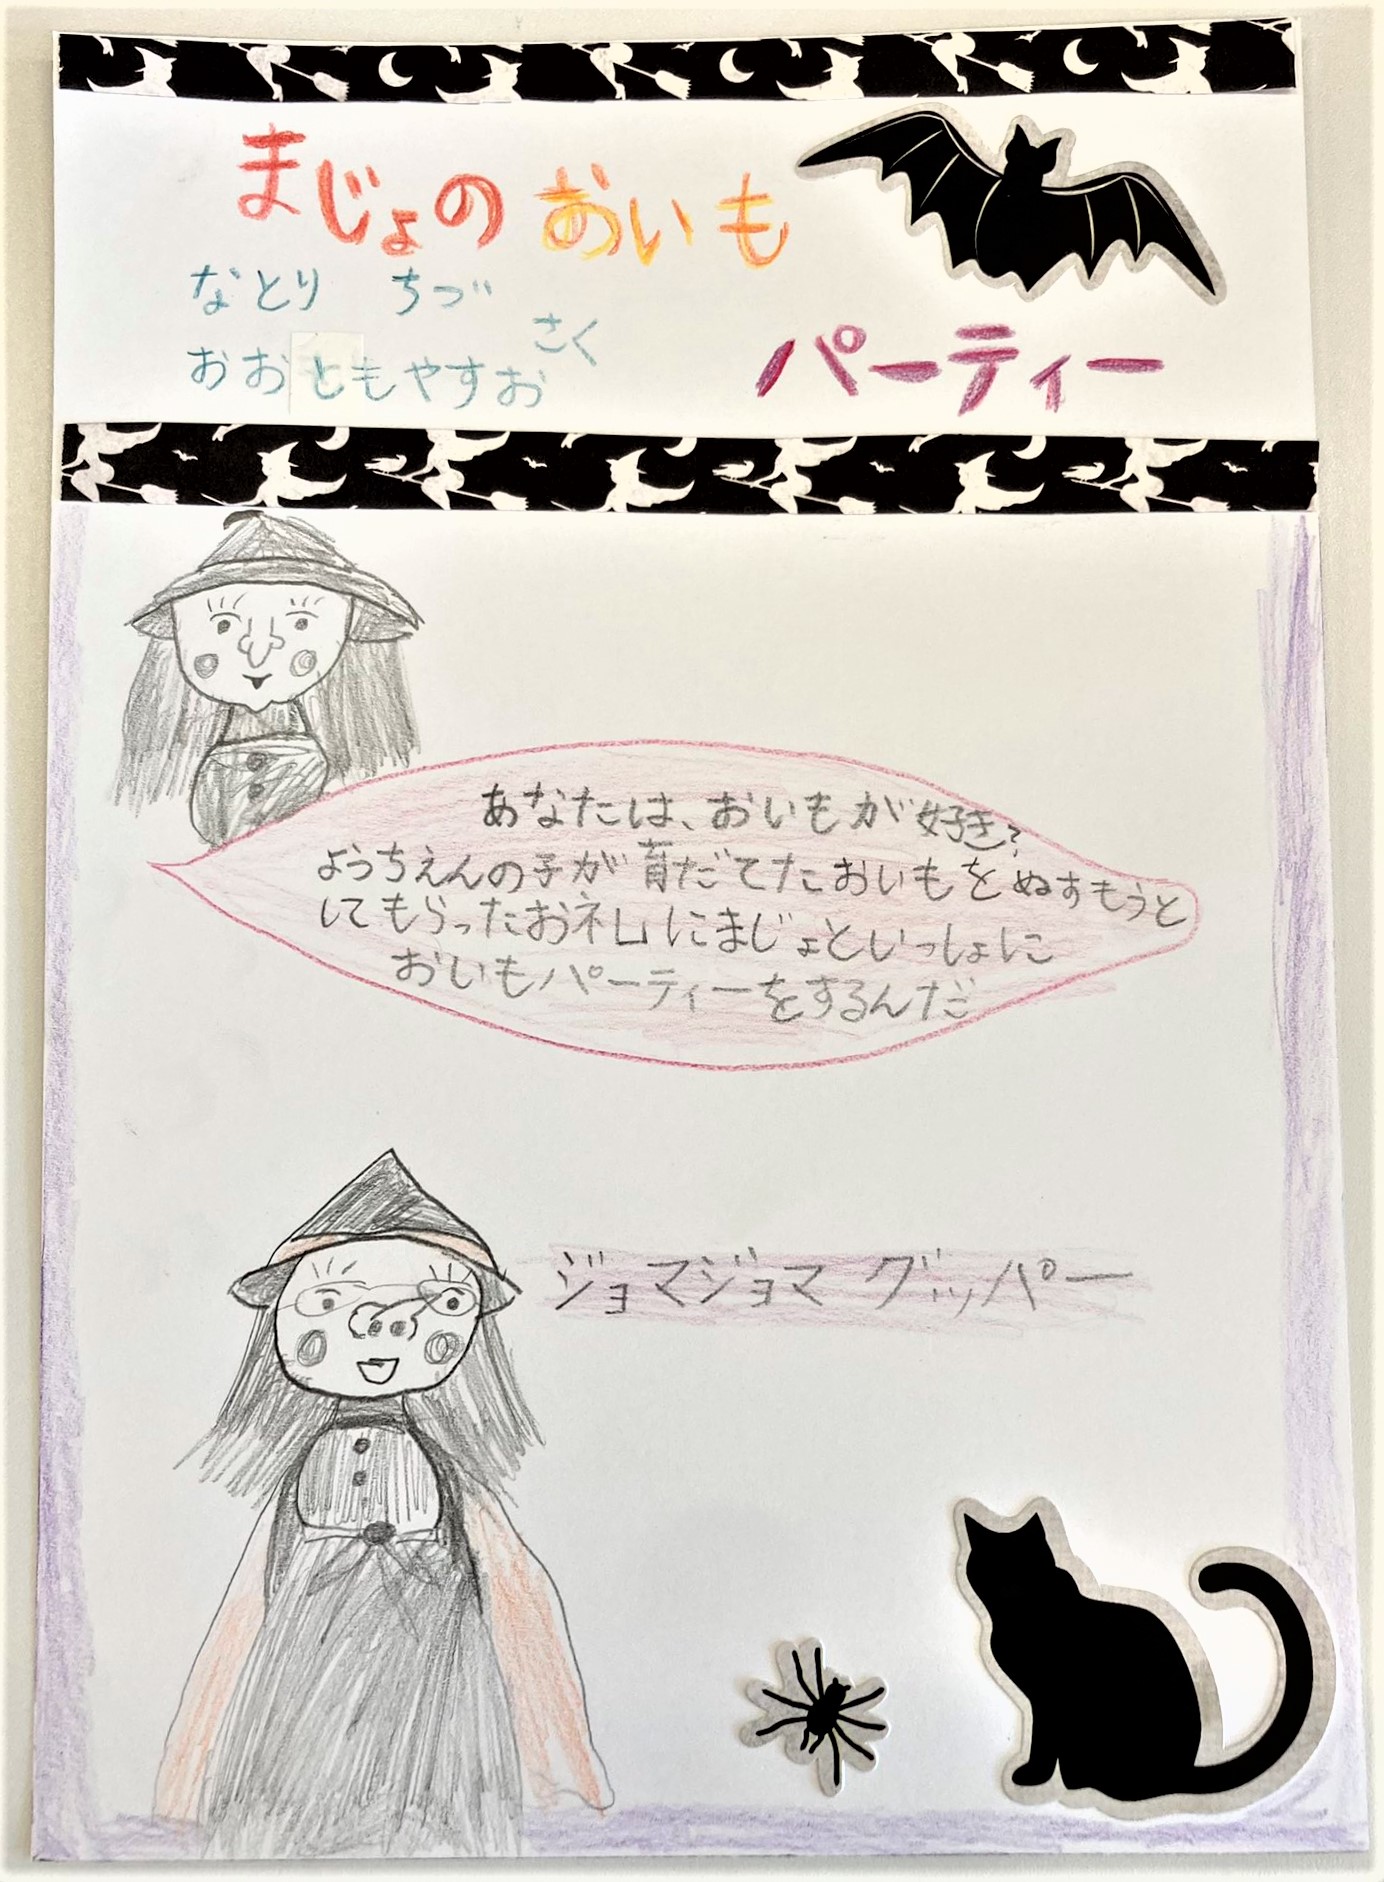 まじょのおいも
パーティー
なとり ちづ
おおともやすお
さく
あなたは、おいもが好き?
ようちえんの子が育だてたおいもをぬすもうと
してもらったお礼にまじょといっしょに
おいもパーティーをするんだ
ジョマジョマ グッパー